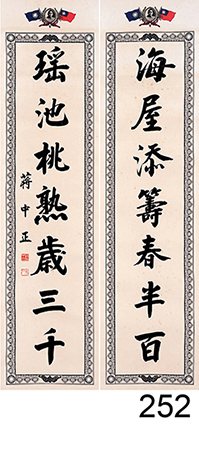 海屋添籌春半百
瑤池桃熟歲三千
蔣中正
252